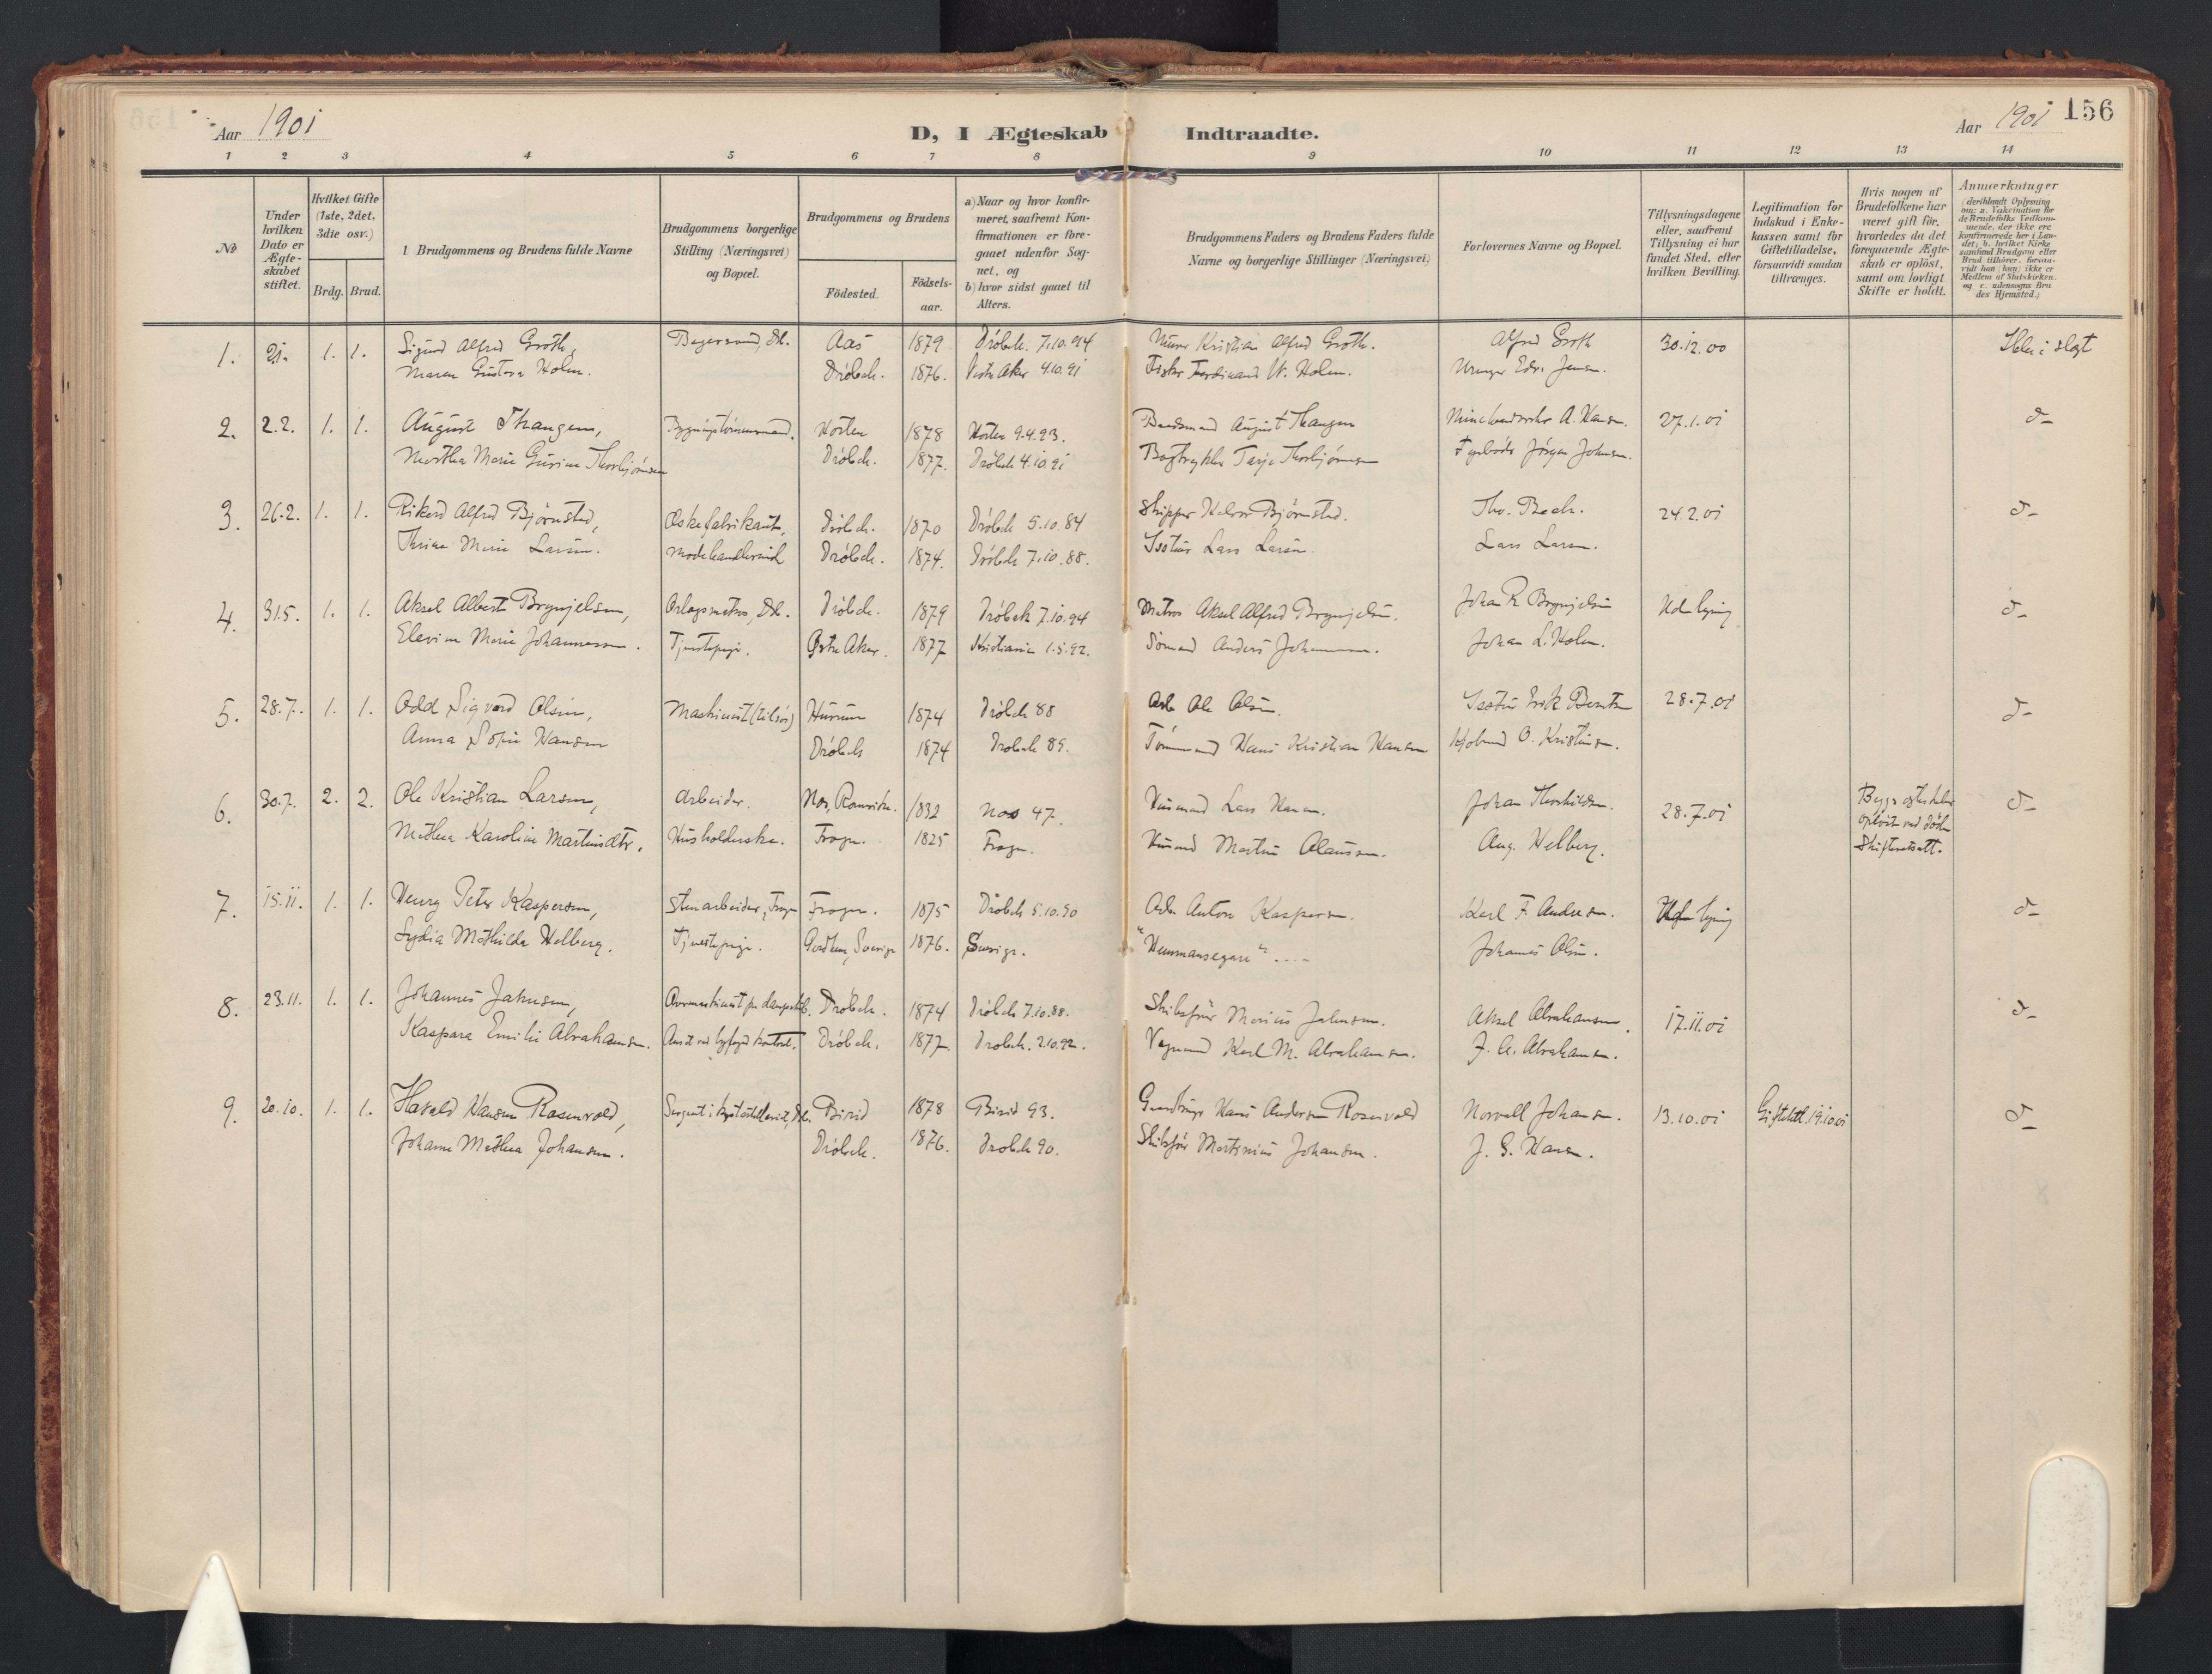 Aar 1901
D, I Ægteskab Indtraadte.
Aar 1901 156
1 2 3 4 5 6 7 8 9 10 11 12 13 14
No
Under hvilken Dato er Ægteskabet stiftet.
Hvilket Gifte (1ste, 2det, 3die osv.)
Brdg. Brud.
1. Brudgommens og Brudens fulde Navne
Brudgommens borgerlige Stilling (Næringsvei) og Bopæl.
Brudgommens og Brudens
Födested.
Födselsaar.
a) Naar og hvor konfirmeret, saafremt Konfirmationen er foregaaet udenfor Sognet, og
b) hvor sidst gaaet til Alters.
Brudgommens Faders og Brudens Faders fulde Navne og borgerlige Stillinger (Næringsvei)
Forlovernes Navne og Bopæl.
Tillysningsdagene eller, saafremt Tillysning ei har fundet Sted, efter hvilken Bevilling.
Legitimation for Indskud i Enkekassen samt for Giftetilladelse, forsaavidt saadan tiltrænges.
Hvis nogen af Brudefolkene har været gift för, hvorledes da det foregaaende Ægteskab er oplöst, samt om lovligt Skifte er holdt.
Anmærkninger (deriblandt Oplysning om: a. Vakcination for de Brudefolks Vedkommende, der ikke ere konfirmerede her i Landet; b. hvilket Kirkesamfund Brudgom eller Brud tilhörer, forsaavidt han (hun) ikke er Medlem af Statskirken, og c. udensogns Brudes Hjemsted.)
1. 1. 1. Sigurd Alfred Groth, Aas 1879 Dröbak. 7.10.94 Murer Kristian Alfred Groth. Alfred Groth 30.12.00 Ikke i slegt
Maren Gustava Holm. Dröbak. 1876. Vestre Aker 4.10.91 Fisker Ferdinand W. Holm.
2. 2.2. 1. 1. August Thangen, Horten 1878 Horten 9.4.93. August Thangen A. Hansen. 27.1.01 d-
Marthea Marie Gurine Thorbjörnsen Dröbak. 1877. Dröbak 4.10.91 Bogtrykker Tarje Thorbjörnsen Fyrböder Jörgen Johnsen.
3. 26.2. 1. 1. Rikard Alfred Björnstad, Æskefabrikant, Dröbak. 1870 Dröbak 5.10.84 Skipper Halvor Björnstad. Tho. Bech. 24.2.01 d-
Thrine Marie Larsen. Modehandlerinde Dröbak. 1874. Dröbak 7.10.88. Lars Larsen. Lars Larsen.
4. 31.5. 1. 1. Aksel Albert Brynjelsen, Orlogsmatros, Db. Dröbak. 1879 Dröbak 7.10.94 Matros Aksel Alfred Brynjelsen. Johan R. Brynjelsen Uden lysning d-
Elevine Marie Johannessen. Tjenestepige. Östre Aker. 1877 Kristiania 1.5.92. Sömand Anders Johannessen. Johan L. Holm.
5. 28.7. 1. 1. Odd Sigvard Olsen, Maskinist (tilsjös) Hurum 1874 Dröbak 88 Arb. Ole Olsen. Erik Berntsen 28.7.01 d-
Anna Sofie Hansen Dröbak 1874 Dröbak 89. Tömmermand Hans Kristian Hansen O. Kristensen.
6. 30.7. 2. 2. Ole Kristian Larsen, Arbeider. Nes, Romerike. 1832 Nes 47. Husmand Lars Hansen. Johan Thorkildsen. 28.7.01 Begge egteskaber oplöst ved död. d-
Mathea Karoline Martinsdtr. Husholderske. Frogn. 1825 Frogn. Husmand Martin Olaussen. Aug. Helberg. Skifteattest.
7. 15.11. 1. 1. Henry Peter Kaspersen, Stenarbeider, Frogn Frogn. 1875 Dröbak 5.10.90 Arb. Anton Kaspersen. Karl F. Andersen. Uden lysning d-
Lydia Mathilda Helberg. Tjenestepige. Sverige 1876. Sverige. "Hemmansegare" .... Johannes Olsen.
8. 23.11. 1. 1. Johannes Jahnsen, Dröbak. 1874 Dröbak 7.10.88. Skibsförer Marius Jahnsen. Aksel Abrahamsen. 17.11.01 d-
Kaspara Emilie Abrahamsen. Dröbak. 1877. Dröbak. 2.10.92. Vognmand Karl M. Abrahamsen. J. A. Abrahamsen.
9. 20.10. 1. 1. Harald Hansen Rosenvold, Birid 1878 Birid 93. Hans Andersen Rosenvold Norvall Johansen. 13.10.01 Giftetill. 19.10.01 d-
Johanne Mathea Johansen. Dröbak. 1876. Dröbak 90. Skibsförer Martinius Johansen. J. G. Hansen.